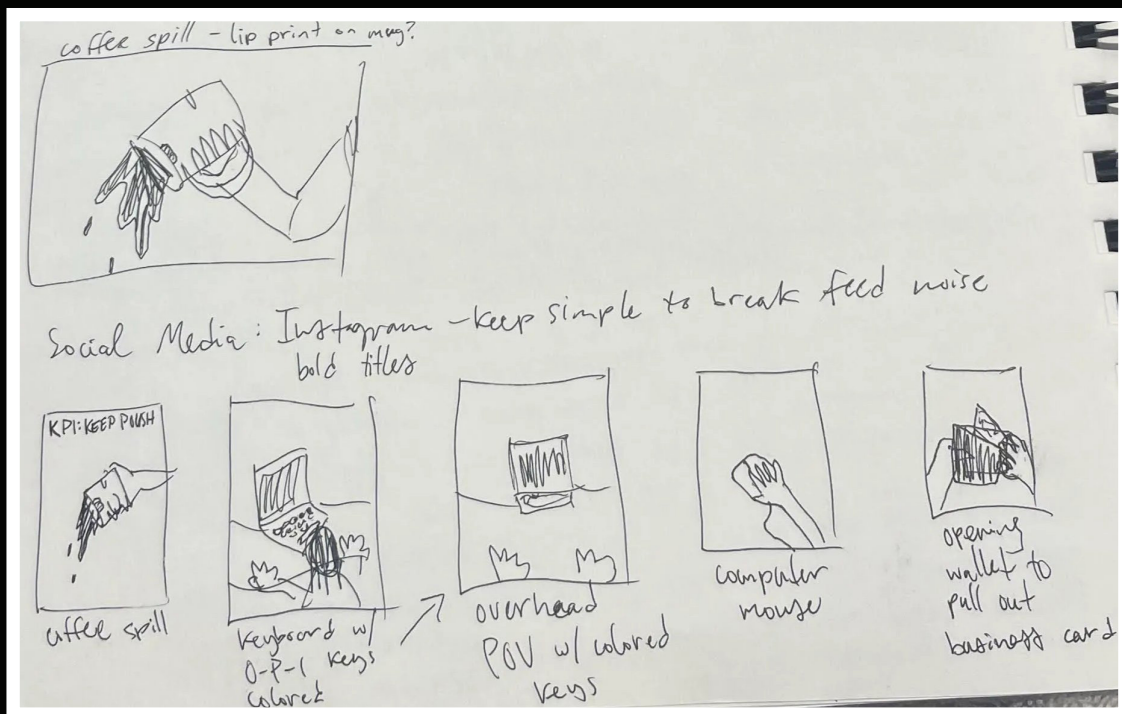 coffee spill - lip print on mug?
Social Media: Instagram - keep simple to break feed noise
bold titles
KPI: KEEP POLISH
coffee spill
keyboard w/
O-P-I keys
colored
overhead
POV w/ colored
keys
computer
mouse
opening
wallet to
pull out
business card